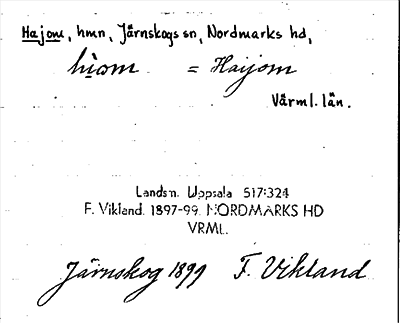 Hajom, hmn, Järnskogs sn, Nordmarks hd,
hìom = Haijom
Värml. län.
Landsm. Uppsala 517:324
F. Vikland. 1897-99. NORDMARKS HD
VRML.
Järnskog 1899 F. Vikland